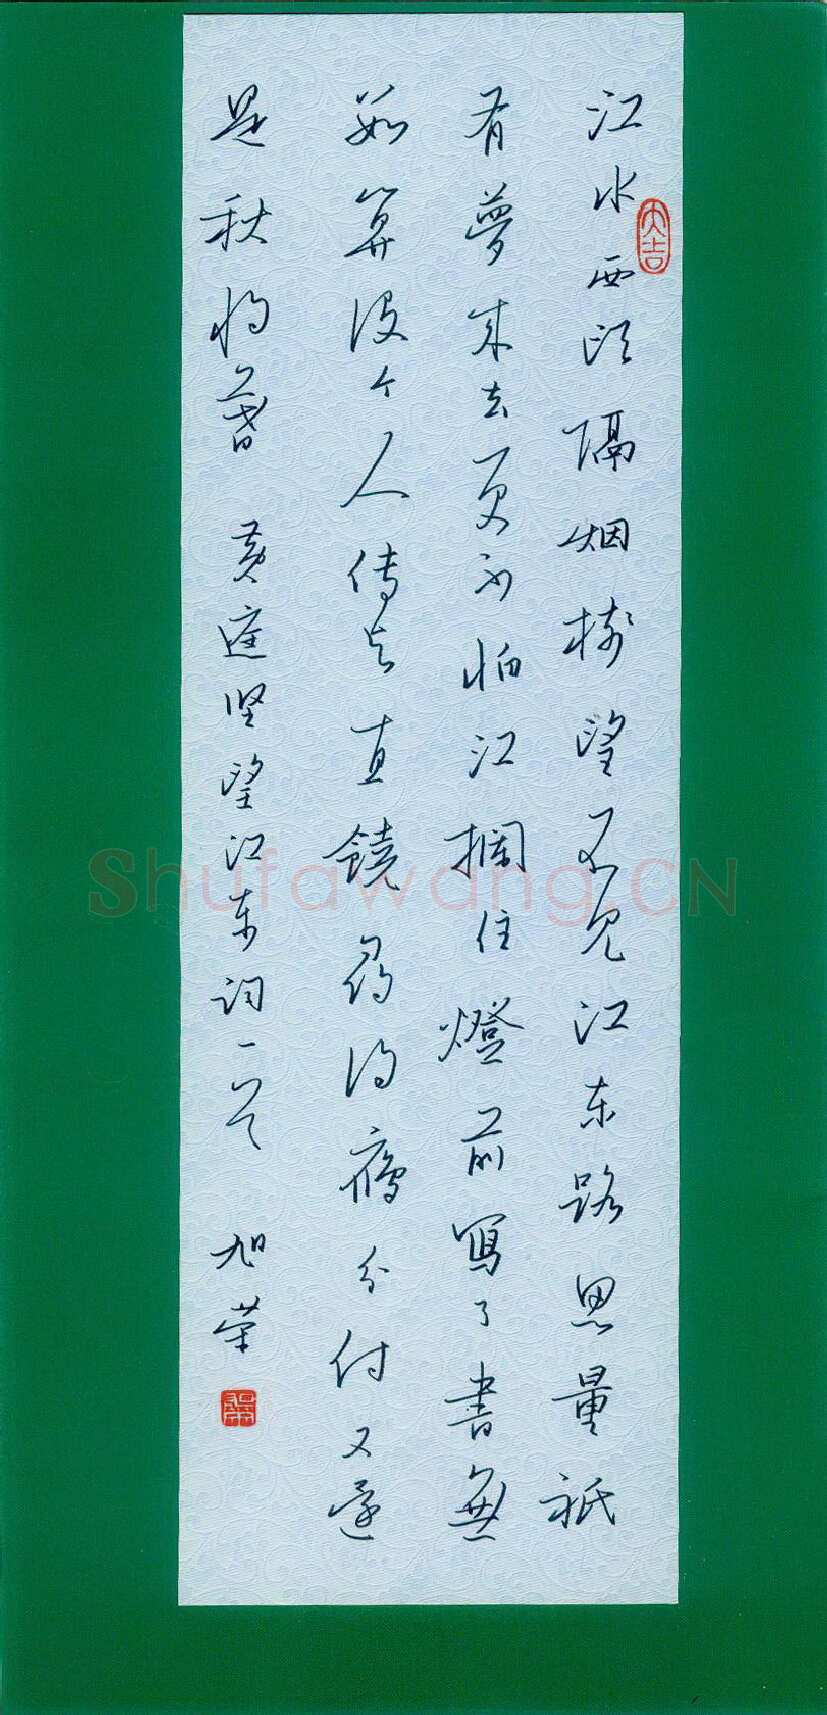 江水西头隔烟树望不见江东路思量祇
有夢来去更不怕江攔住燈前寫了書無
数算没个人傳与直饒尋得雁分付又還
是秋将暮 黄庭坚望江东词一首 旭荣
大吉
Shufawang.CN